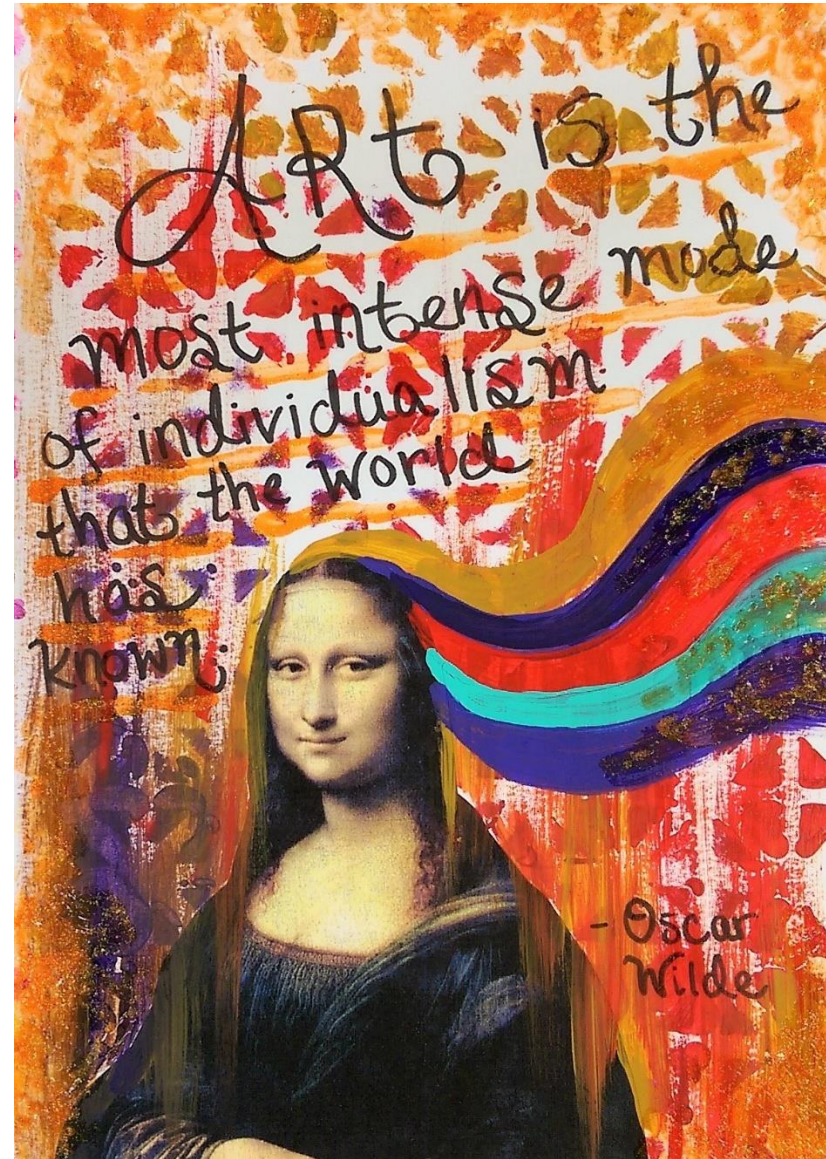 ARt is the
most intense mode
of individualism
that the world
has
known.
- Oscar
Wilde